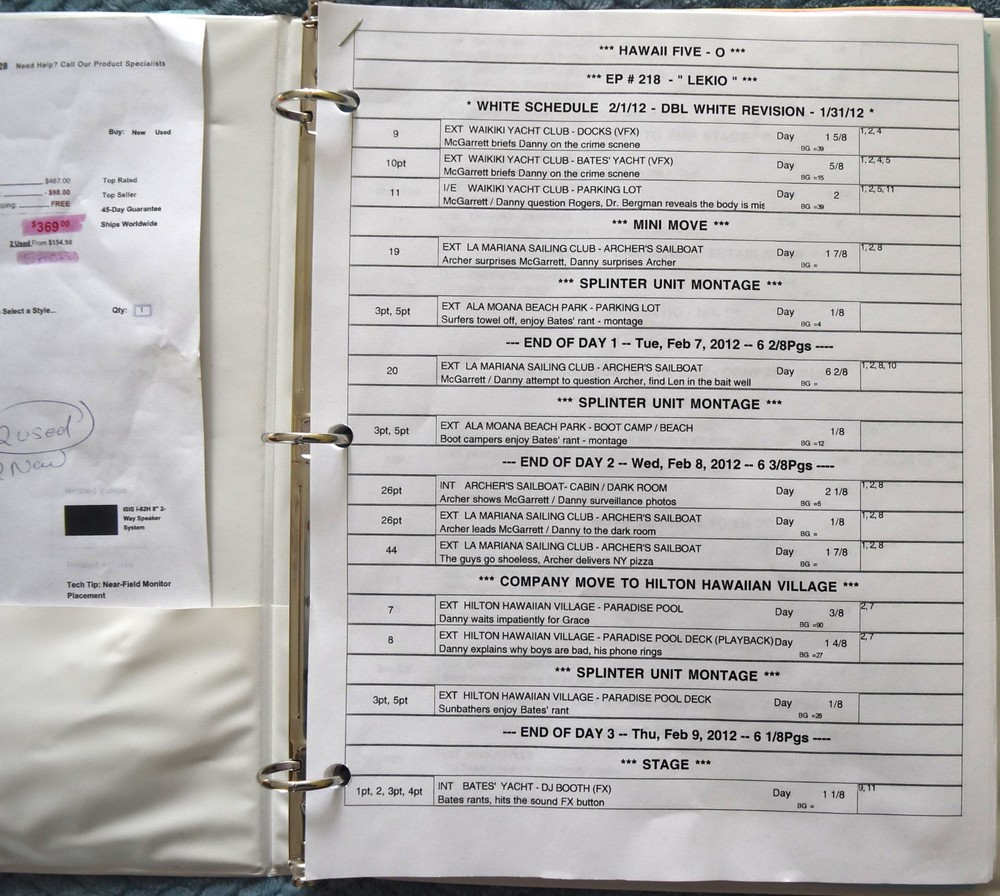 28 Need Help? Call Our Product Specialists
Buy: New Used
$467.00
- $98.00
FREE
$369.00
2 Used From $154.98
Top Rated
Top Seller
45-Day Guarantee
Ships Worldwide
Select a Style...
Qty: 1
2 used
New
ISIS I-82H 8" 2-
Way Speaker
System
Tech Tip: Near-Field Monitor
Placement
*** HAWAII FIVE - O ***
*** EP # 218 - " LEKIO " ***
* WHITE SCHEDULE 2/1/12 - DBL WHITE REVISION - 1/31/12 *
9 EXT WAIKIKI YACHT CLUB - DOCKS (VFX) Day 1 5/8 1, 2, 4
McGarrett briefs Danny on the crime scnene BG =39
10pt EXT WAIKIKI YACHT CLUB - BATES' YACHT (VFX) Day 5/8 1, 2, 4, 5
McGarrett briefs Danny on the crime scnene BG =15
11 I/E WAIKIKI YACHT CLUB - PARKING LOT Day 2 1, 2, 5, 11
McGarrett / Danny question Rogers, Dr. Bergman reveals the body is mis BG =39
*** MINI MOVE ***
19 EXT LA MARIANA SAILING CLUB - ARCHER'S SAILBOAT Day 1 7/8 1, 2, 8
Archer surprises McGarrett, Danny surprises Archer BG =
*** SPLINTER UNIT MONTAGE ***
3pt, 5pt EXT ALA MOANA BEACH PARK - PARKING LOT Day 1/8
Surfers towel off, enjoy Bates' rant - montage BG =4
--- END OF DAY 1 -- Tue, Feb 7, 2012 -- 6 2/8Pgs ----
20 EXT LA MARIANA SAILING CLUB - ARCHER'S SAILBOAT Day 6 2/8 1, 2, 8, 10
McGarrett / Danny attempt to question Archer, find Len in the bait well BG =
*** SPLINTER UNIT MONTAGE ***
3pt, 5pt EXT ALA MOANA BEACH PARK - BOOT CAMP / BEACH 1/8
Boot campers enjoy Bates' rant - montage BG =12
--- END OF DAY 2 -- Wed, Feb 8, 2012 -- 6 3/8Pgs ----
26pt INT ARCHER'S SAILBOAT- CABIN / DARK ROOM Day 2 1/8 1, 2, 8
Archer shows McGarrett / Danny surveillance photos BG =5
26pt EXT LA MARIANA SAILING CLUB - ARCHER'S SAILBOAT Day 1/8 1, 2, 8
Archer leads McGarrett / Danny to the dark room BG =
44 EXT LA MARIANA SAILING CLUB - ARCHER'S SAILBOAT Day 1 7/8 1, 2, 8
The guys go shoeless, Archer delivers NY pizza BG =
*** COMPANY MOVE TO HILTON HAWAIIAN VILLAGE ***
7 EXT HILTON HAWAIIAN VILLAGE - PARADISE POOL Day 3/8 2, 7
Danny waits impatiently for Grace BG =90
8 EXT HILTON HAWAIIAN VILLAGE - PARADISE POOL DECK (PLAYBACK) Day 1 4/8 2, 7
Danny explains why boys are bad, his phone rings BG =27
*** SPLINTER UNIT MONTAGE ***
3pt, 5pt EXT HILTON HAWAIIAN VILLAGE - PARADISE POOL DECK Day 1/8
Sunbathers enjoy Bates' rant BG =26
--- END OF DAY 3 -- Thu, Feb 9, 2012 -- 6 1/8Pgs ----
*** STAGE ***
1pt, 2, 3pt, 4pt INT BATES' YACHT - DJ BOOTH (FX) Day 1 1/8 9, 11
Bates rants, hits the sound FX button BG =